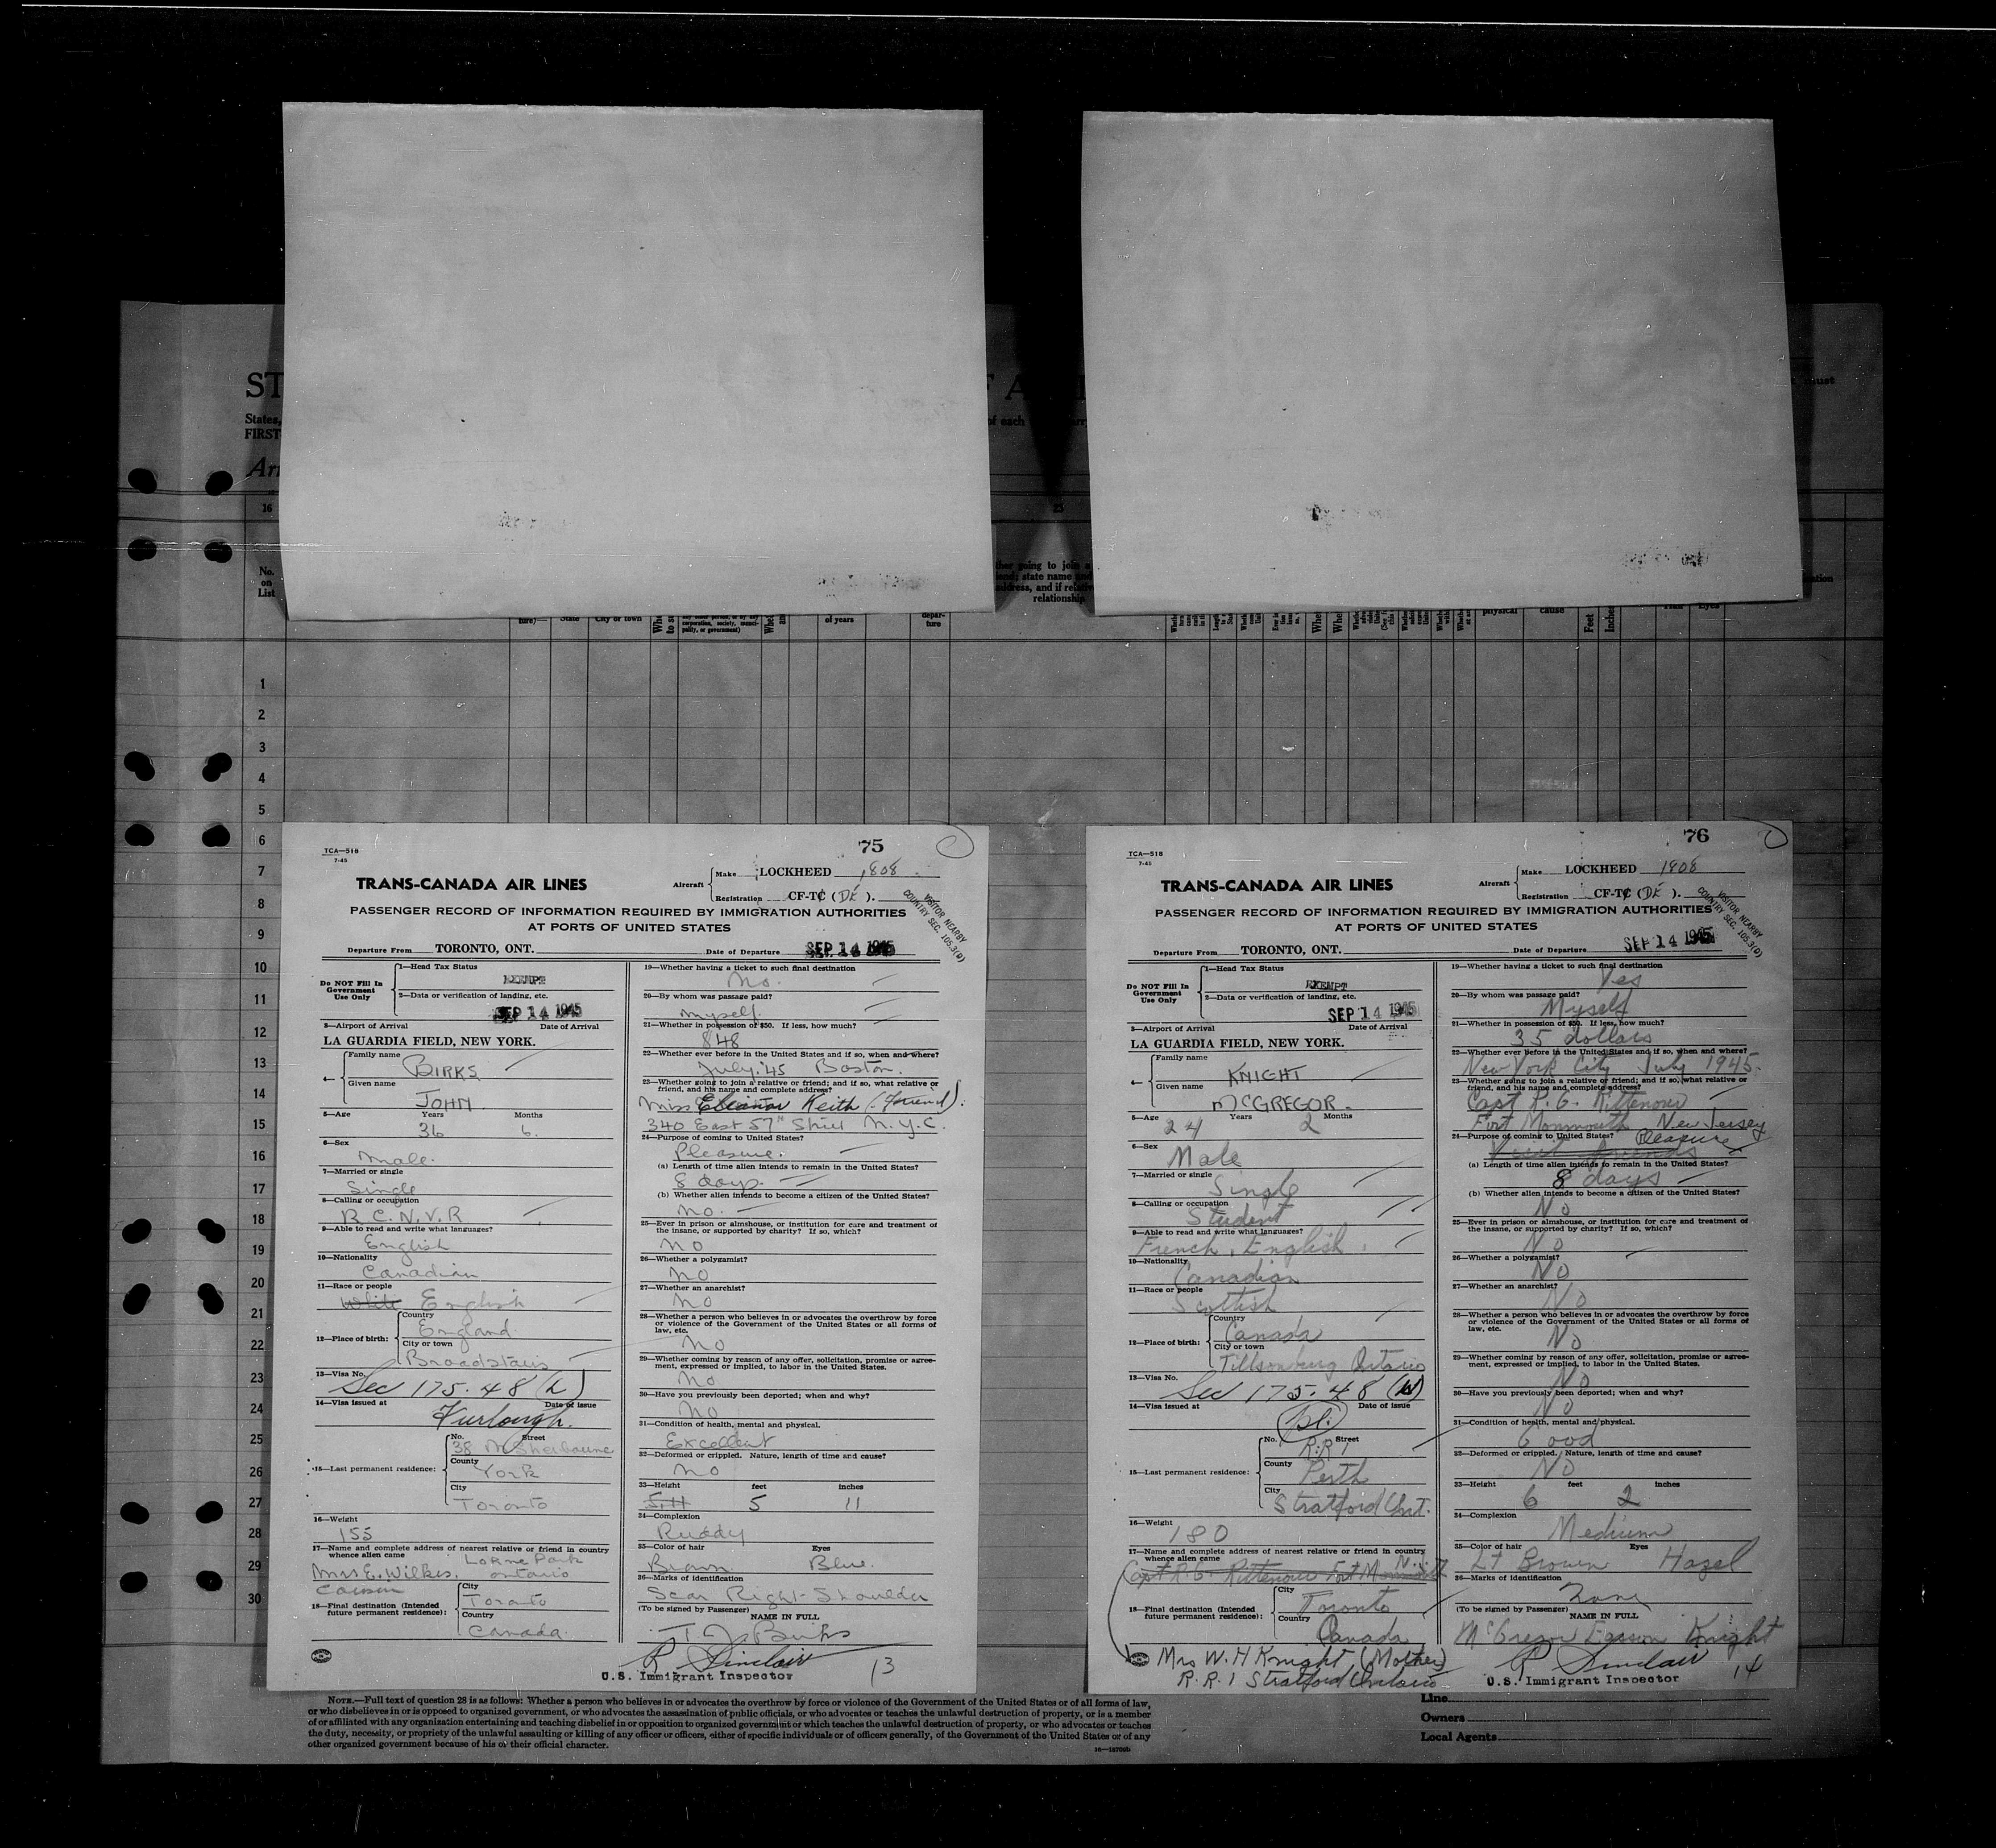 ST
States,
FIRST-
Arr
F A
of each
arr
must
16
25
No.
on
List
ture)—
State
City or town
of years
depar-
ture
ther going to join a
end; state name and
address, and if relative
relationship
physical
cause
Feet
Inches
Eyes
1
2
3
4
5
6
7
8
9
10
11
12
13
14
15
16
17
18
19
20
21
22
23
24
25
26
27
28
29
30
75
TCA—518
7-45
TRANS-CANADA AIR LINES
Aircraft
Make LOCKHEED 1808
Registration CF-TC (DE).
VISITOR NEARBY
COUNTRY SEC. 105.3(D)
PASSENGER RECORD OF INFORMATION REQUIRED BY IMMIGRATION AUTHORITIES
AT PORTS OF UNITED STATES
Departure From TORONTO, ONT.
Date of Departure SEP 14 1945
Do NOT Fill In
Government
Use Only
1—Head Tax Status
EXEMPT
2—Data or verification of landing, etc.
SEP 14 1945
3—Airport of Arrival Date of Arrival
LA GUARDIA FIELD, NEW YORK.
4— Family name
BIRKS
Given name
JOHN
5—Age Years Months
36 6.
6—Sex
Male.
7—Married or single
Single
8—Calling or occupation
R.C.N.V.R
9—Able to read and write what languages?
English
10—Nationality
Canadian
11—Race or people
White English
12—Place of birth:
Country
England.
City or town
Broadstairs
13—Visa No.
Sec 175.48 (L)
14—Visa issued at Date of issue
Furlough.
15—Last permanent residence:
No. Street
38 N Sherbourne
County
York
City
Toronto
16—Weight
155
17—Name and complete address of nearest relative or friend in country
whence alien came
Lorne Park
Mrs E. Wilkes. Ontario
Cousin
18—Final destination (Intended
future permanent residence):
City
Toronto
Country
Canada.
19—Whether having a ticket to such final destination
No.
20—By whom was passage paid?
Myself.
21—Whether in possession of $50. If less, how much?
$48
22—Whether ever before in the United States and if so, when and where?
July '45 Boston.
23—Whether going to join a relative or friend; and if so, what relative or
friend, and his name and complete address?
Miss Eleanor Keith (Friend).
340 East 57th Street N.Y.C.
24—Purpose of coming to United States?
Pleasure.
(a) Length of time alien intends to remain in the United States?
8 days.
(b) Whether alien intends to become a citizen of the United States?
No.
25—Ever in prison or almshouse, or institution for care and treatment of
the insane, or supported by charity? If so, which?
No
26—Whether a polygamist?
No
27—Whether an anarchist?
No
28—Whether a person who believes in or advocates the overthrow by force
or violence of the Government of the United States or all forms of
law, etc.
No
29—Whether coming by reason of any offer, solicitation, promise or agree-
ment, expressed or implied, to labor in the United States.
No
30—Have you previously been deported; when and why?
No
31—Condition of health, mental and physical.
Excellent
32—Deformed or crippled. Nature, length of time and cause?
No
33—Height feet inches
5,11 5 11
34—Complexion
Ruddy
35—Color of hair Eyes
Brown Blue.
36—Marks of identification
Scar Right Shoulder
(To be signed by Passenger) NAME IN FULL
T. J. Birks
R Sinclair 13
U.S. Immigrant Inspector
76
TCA—518
7-45
TRANS-CANADA AIR LINES
Aircraft
Make LOCKHEED 1808
Registration CF-TC (DE).
VISITOR NEARBY
COUNTRY SEC. 105.3(D)
PASSENGER RECORD OF INFORMATION REQUIRED BY IMMIGRATION AUTHORITIES
AT PORTS OF UNITED STATES
Departure From TORONTO, ONT.
Date of Departure SEP 14 1945
Do NOT Fill In
Government
Use Only
1—Head Tax Status
EXEMPT
2—Data or verification of landing, etc.
SEP 14 1945
3—Airport of Arrival Date of Arrival
LA GUARDIA FIELD, NEW YORK.
4— Family name
KNIGHT
Given name
McGREGOR.
5—Age Years Months
24 2
6—Sex
Male
7—Married or single
Single
8—Calling or occupation
Student
9—Able to read and write what languages?
French, English
10—Nationality
Canadian
11—Race or people
Scottish
12—Place of birth:
Country
Canada
City or town
Tillsonburg Ontario
13—Visa No.
Sec 175.48 (W)
14—Visa issued at Date of issue
15—Last permanent residence:
No. Street
R.R 1
County
Perth
City
Stratford Ont.
16—Weight
180
17—Name and complete address of nearest relative or friend in country
whence alien came
Capt R.G. Rittenour Fort Monmouth N.J.
18—Final destination (Intended
future permanent residence):
City
Toronto
Country
Canada
Mrs W. H Knight (Mother)
R.R. 1 Stratford Ontario
19—Whether having a ticket to such final destination
Yes
20—By whom was passage paid?
Myself
21—Whether in possession of $50. If less, how much?
35 dollars
22—Whether ever before in the United States and if so, when and where?
New York City July 1945.
23—Whether going to join a relative or friend; and if so, what relative or
friend, and his name and complete address?
Capt R. G. Rittenour
Fort Monmouth New Jersey
24—Purpose of coming to United States? Pleasure
Visit friends
(a) Length of time alien intends to remain in the United States?
8 days
(b) Whether alien intends to become a citizen of the United States?
No
25—Ever in prison or almshouse, or institution for care and treatment of
the insane, or supported by charity? If so, which?
No
26—Whether a polygamist?
No
27—Whether an anarchist?
No
28—Whether a person who believes in or advocates the overthrow by force
or violence of the Government of the United States or all forms of
law, etc.
No
29—Whether coming by reason of any offer, solicitation, promise or agree-
ment, expressed or implied, to labor in the United States.
No
30—Have you previously been deported; when and why?
No
31—Condition of health, mental and physical.
Good
32—Deformed or crippled. Nature, length of time and cause?
No
33—Height feet inches
6 2
34—Complexion
Medium
35—Color of hair Eyes
Lt Brown Hazel
36—Marks of identification
None
(To be signed by Passenger) NAME IN FULL
McGregor Easson Knight
R Sinclair 14
U.S. Immigrant Inspector
NOTE.—Full text of question 28 is as follows: Whether a person who believes in or advocates the overthrow by force or violence of the Government of the United States or of all forms of law,
or who disbelieves in or is opposed to organized government, or who advocates the assassination of public officials, or who advocates or teaches the unlawful destruction of property, or is a member
of or affiliated with any organization entertaining and teaching disbelief in or opposition to organized government or which teaches the unlawful destruction of property, or who advocates or teaches
the duty, necessity, or propriety of the unlawful assaulting or killing of any officer or officers, either of specific individuals or of officers generally, of the Government of the United States or of any
other organized government because of his or their official character.
Line
Owners
Local Agents